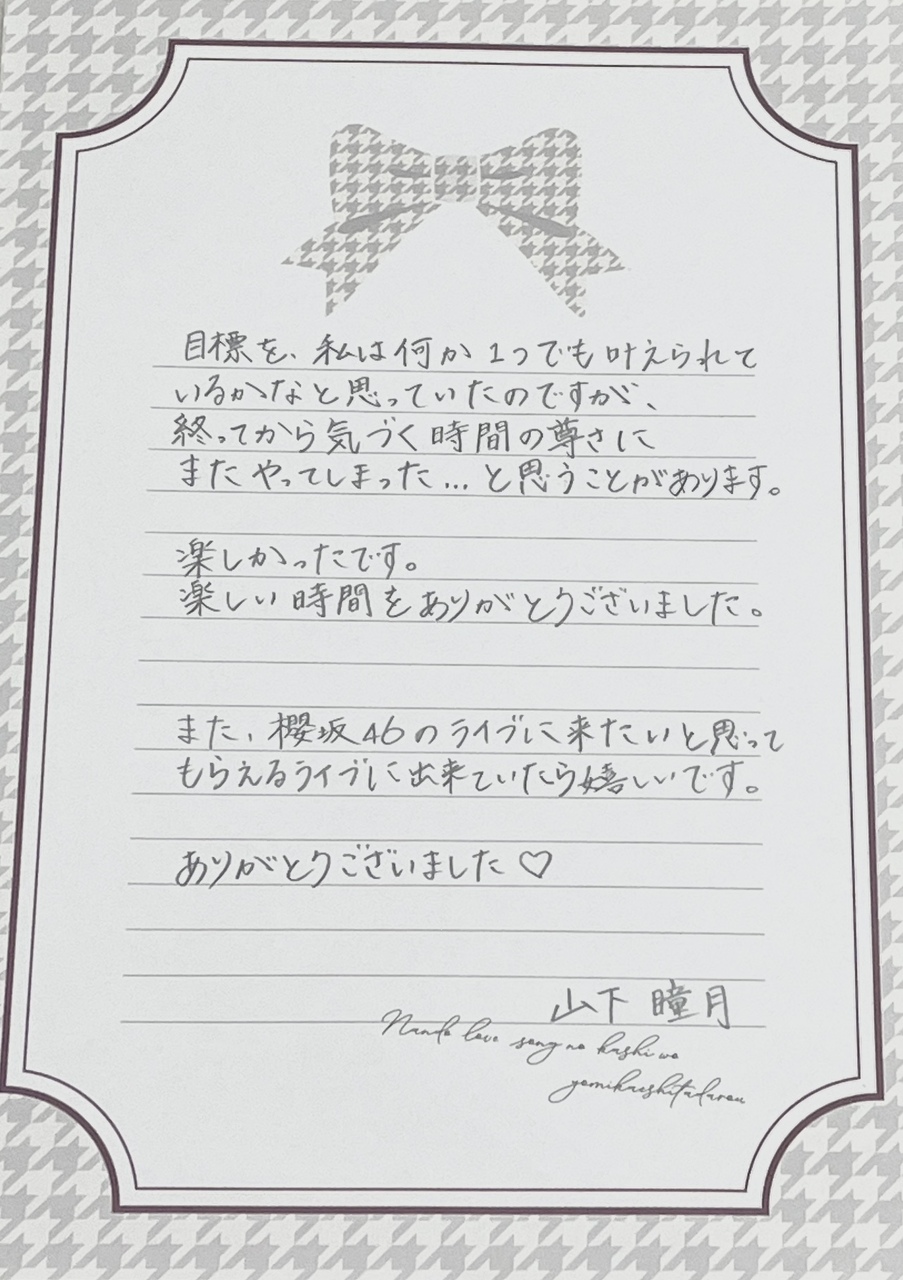 目標を、私は何か1つでも叶えられて
いるかなと思っていたのですが、
終ってから気づく時間の尊さに
またやってしまった…と思うことがあります。
楽しかったです。
楽しい時間をありがとうございました。
また、櫻坂46のライブに来たいと思って
もらえるライブに出来ていたら嬉しいです。
ありがとうございました♡
山下 瞳月
Nando love song no kashi wo
yomikaeshitadarou